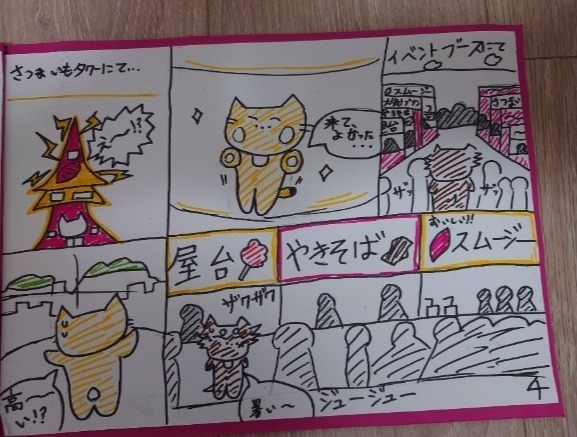 さつまいもタワーにて…
えー!!?
来て、
よかった…
イベントブースにて
スムージー
さつまい
ザッ
ザッ
屋台
やきそば
おいしい!!
スムージー
高〜
い!?
ザワザワ
暑い〜
ジュージュー
4